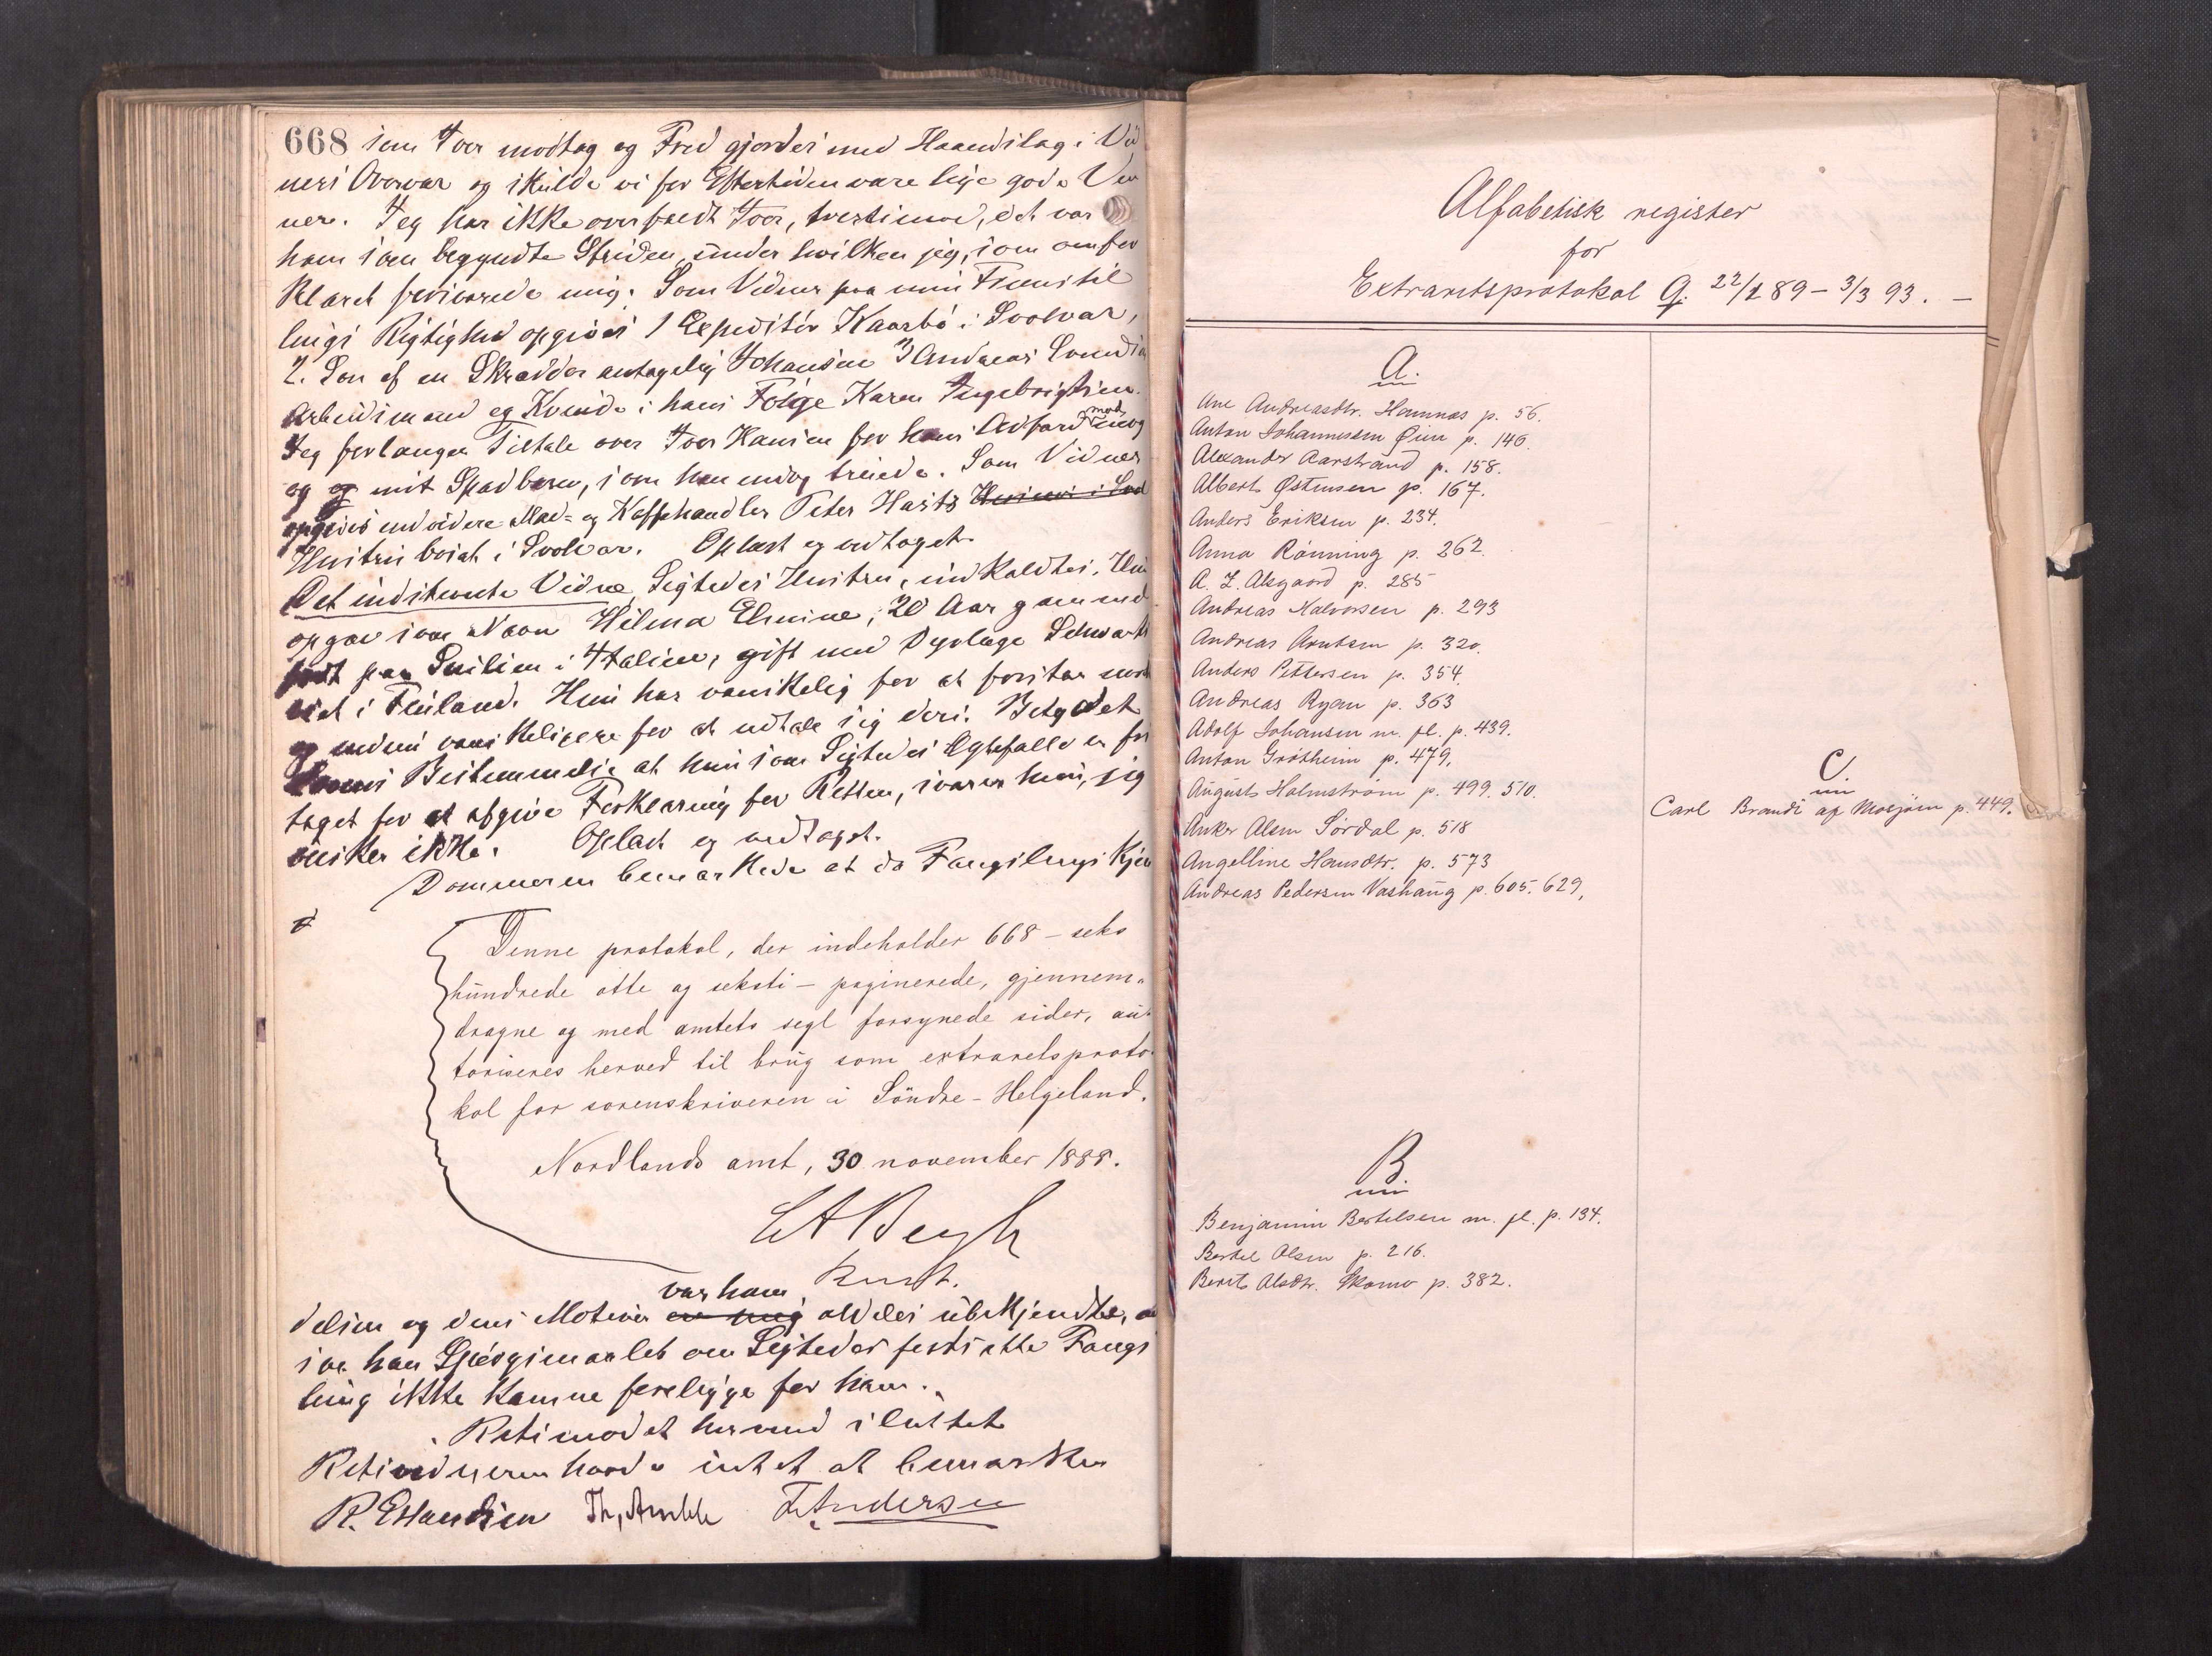 668 som Iver modtog og Fred gjordes med Haandslag i Vid
ners Overvær og skulde vi for Eftertiden være lige gode Ven
ner. Jeg har ikke overfaldt Iver, tvertimod, det var
ham som begyndte Striden, under hvilken jeg, som omfor
klaret forsvarede mig. Som Vidner paa min Fremstil
lings Rigtighed opgives 1 Expeditør Kaarbø i Svolvær,
2. Søn af en Skrædder antagelig Johansen 3 Andreas
Arbeidsmand og Kvinde i hans Følge Karen Ingebrigtsen.
Jeg forlanger Tiltale over Iver Hansen for hans Adfærd mod mig
og og mit Spædbarn, som han endog truede. Som Vidner
opgives endvidere Mad- og Kaffehandler Peter Hartz
Hustru bosat i Svolvær. Oplæst og vedtaget.
Det indstevnte Vidne Sigtedes Hustru, indkaldtes. Hun
opgav som Navn Hilma Elmine, 20 Aar gammel
født paa Sicilien i Italien, gift med Dyrlæge Schwartz
i Finland. Hun har vanskelig for at forstaa norsk
og endnu vanskeligere for at udtale sig deri. Betydet
Lovens Bestemmelse at hun som Sigtedes Ægtefælle er fri
taget for at afgive Forklaring for Retten, svarer hun, jeg
ønsker ikke. Oplæst og vedtaget.
Dommeren bemærkede at da Fængslings Kjen
Denne protokol, der indeholder 668 – seks
hundrede otte og seksti – paginerede, gjennem-
dragne og med amtets segl forsynede sider, au-
toriseres herved til brug som extraretsproto-
kol for sorenskriveren i Söndre-Helgeland.
Nordlands amt, 30 november 1888.
Kst.
var ham
delsen og dens Motiver er mig aldeles ubekjendte,
saa kan Spørgsmaalet om Sigtedes fortsatte Fængs
ling ikke kunne foreligge for ham.
Retsmødet hermed sluttet
Retsvidnerne havde intet at bemærke
R. Th. F. Andersen
Alfabetisk register
for
Extraretsprotokol Q. 22/1 89 – 3/3 93. –
A.
Ane Andreasdtr. Hamnæs p. 56.
Anton Johannessen Øien p. 146.
Alexander Aarstrand p. 158.
Albert Østensen p. 167.
Anders Eriksen p. 234.
Anna Rønning p. 262.
A. Z. Alsgaard p. 285
Andreas Halvorsen p. 293
Andreas Arntsen p. 320.
Anders Pettersen p. 354.
Andreas Ryan p. 363
Adolf Johansen m. fl. p. 439.
Anton Grøtheim p. 479.
August Holmström p. 499. 510.
Anker Olsen Sørdal p. 518
Angelline Hansdtr. p. 573
Andreas Pedersen Vashaug p. 605. 629,
B
Benjamin Bertelsen m. fl. p. 134.
Bertel Olsen p. 216.
Berit Olsdtr. Skomo p. 382.
C.
Carl Brandi af Mosjøen p. 449.